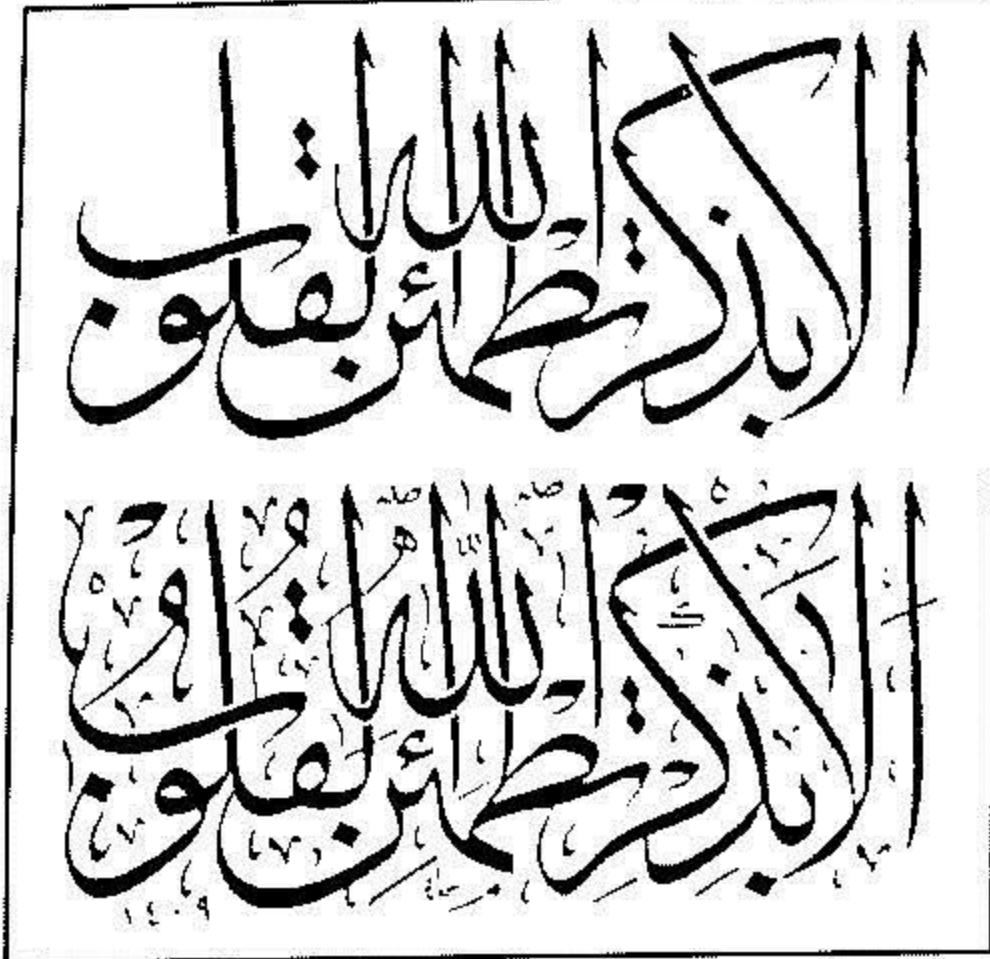 الا بذكر الله تطمئن القلوب
أَلَا بِذِكْرِ اللَّهِ تَطْمَئِنُّ الْقُلُوبُ
١٤٠٩